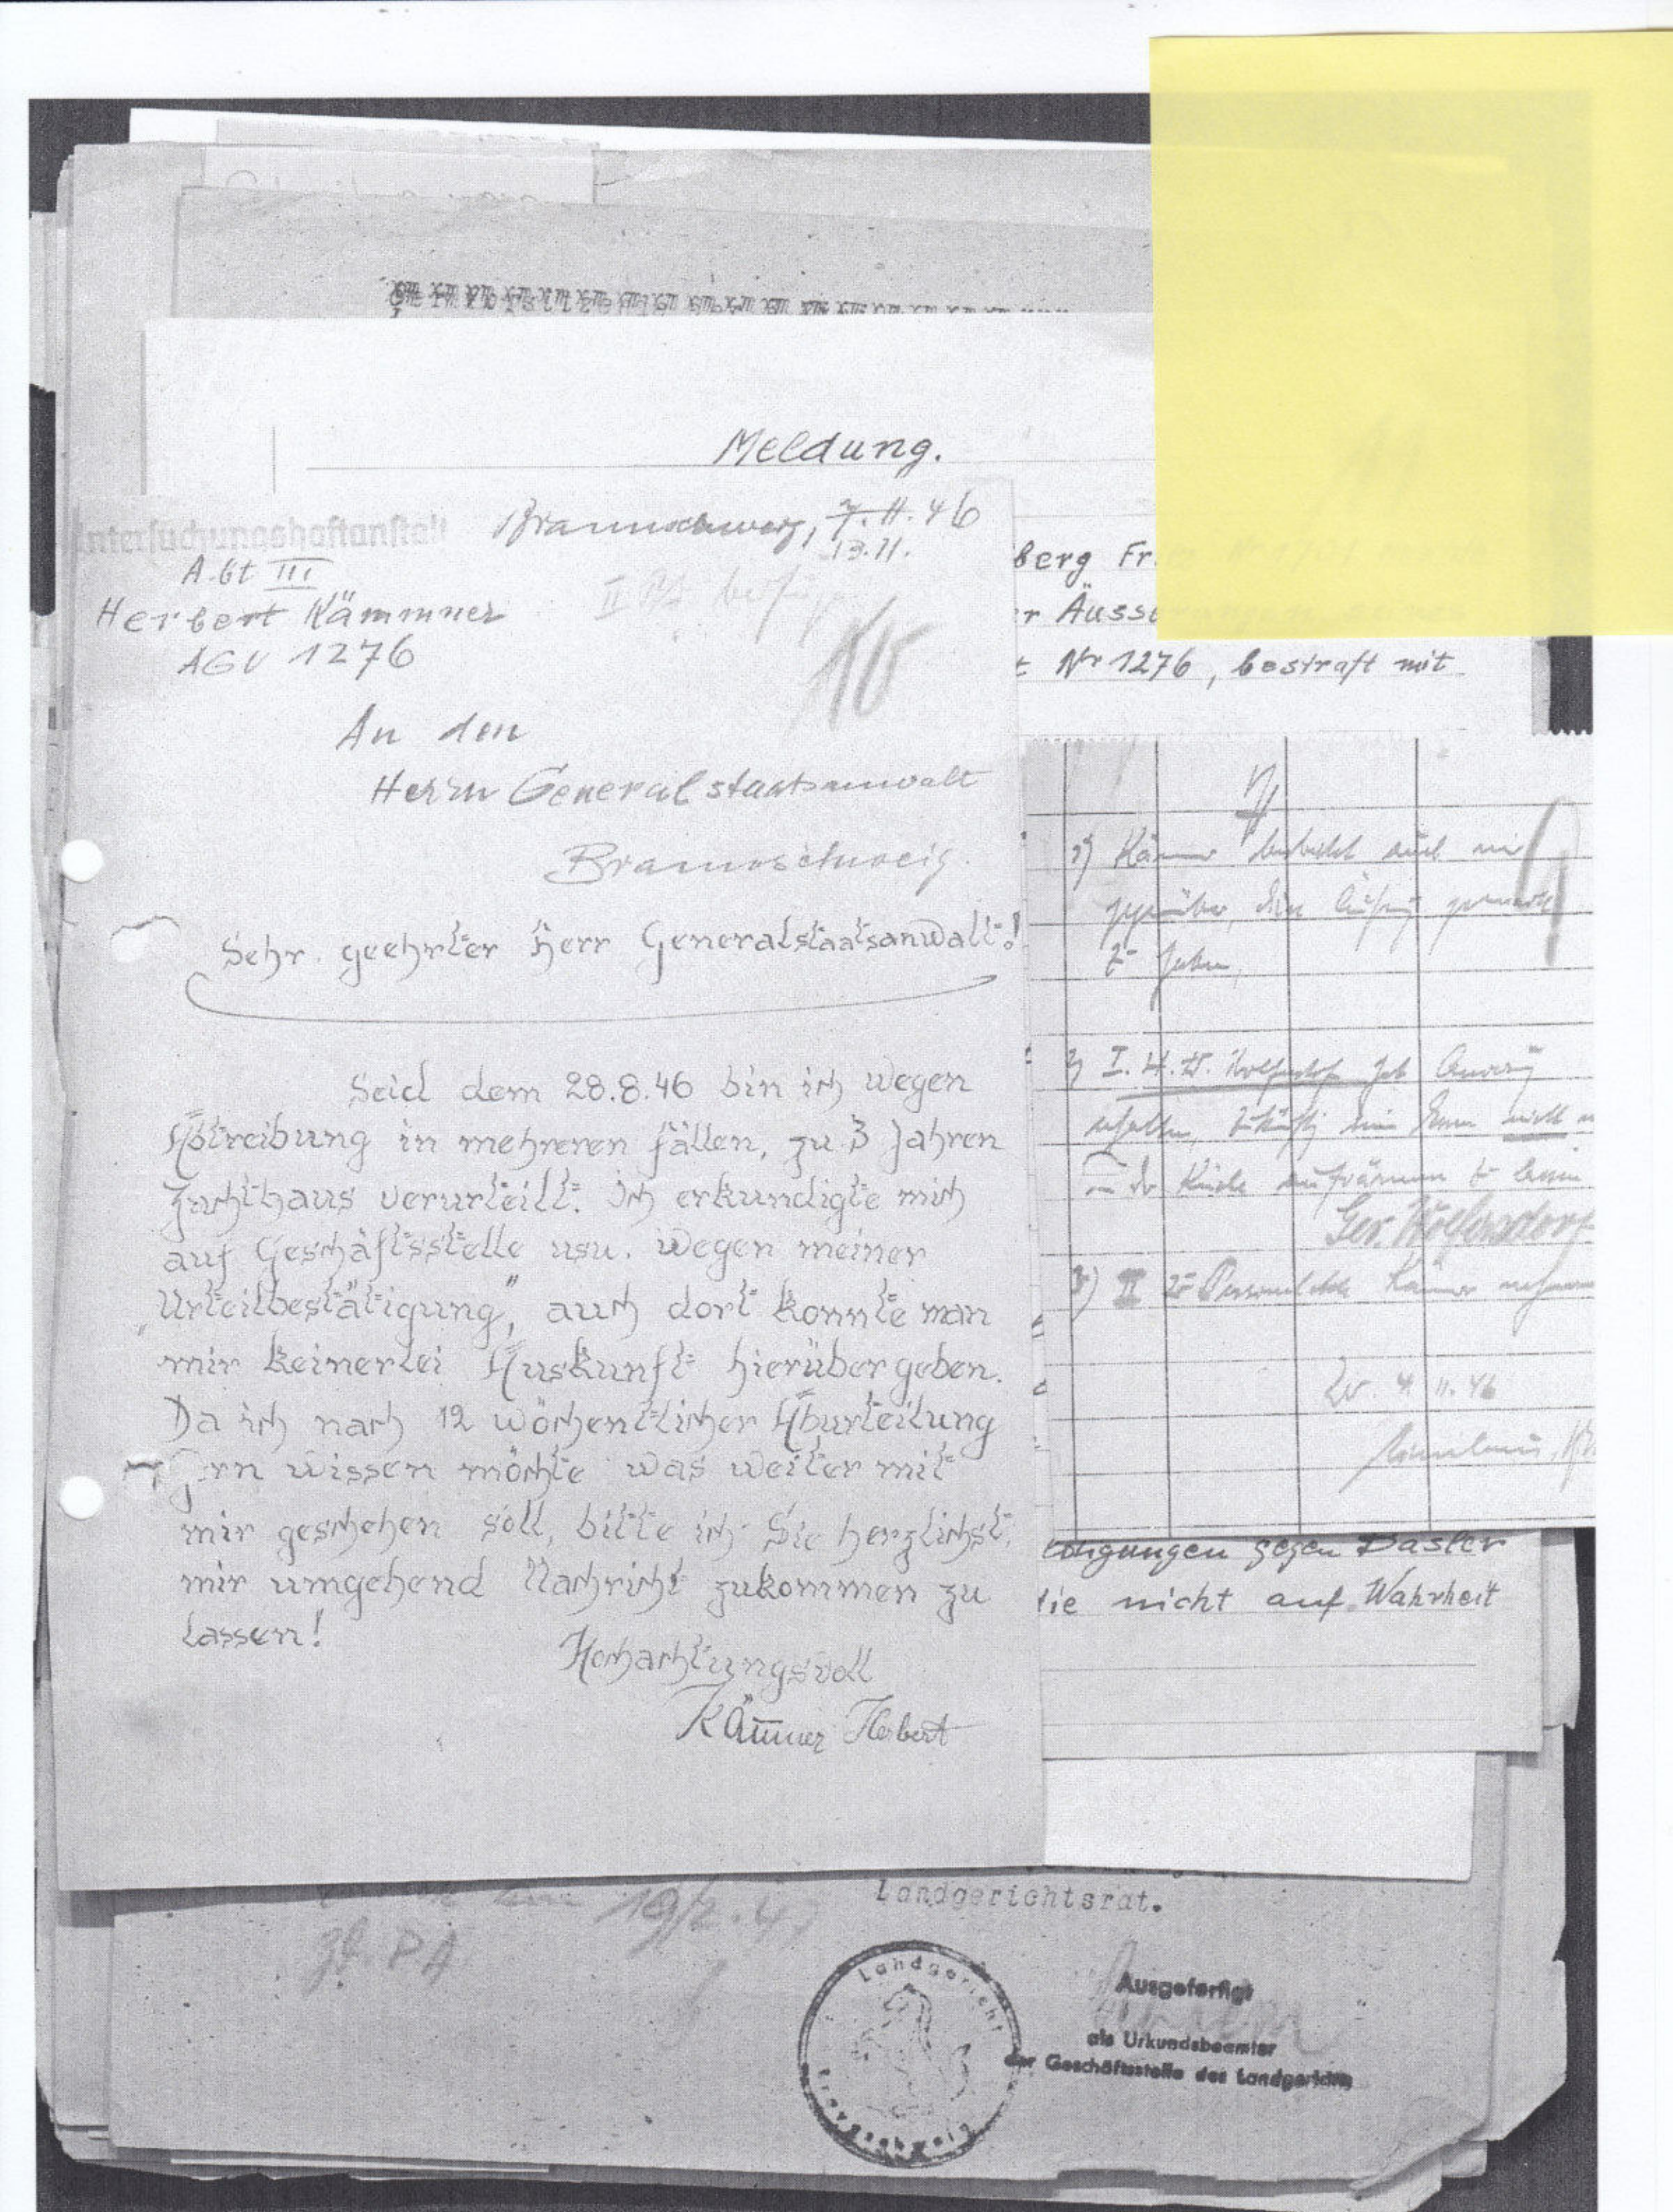 Meldung.
Untersuchungshaftanstalt
Braunschweig, 7.11.46
13.11.
Abt III
Herbert Kämmner
AGV 1276
An den
Herrn Generalstaatsanwalt
Braunschweig.
Sehr geehrter Herr Generalstaatsanwalt!
Seid dem 28.8.46 bin ich wegen
Abtreibung in mehreren fällen, zu 3 Jahren
Zuchthaus verurteilt. Ich erkundigte mich
auf Geschäftsstelle usw. wegen meiner
„Urteilbestätigung", auch dort konnte man
mir keinerlei Auskunft hierüber geben.
Da ich nach 12 wöchentlicher Aburteilung
Gern wissen möchte was weiter mit
mir geschehen soll, bitte ich Sie herzlichst,
mir umgehend Nachricht zukommen zu
lassen!
Hochachtungsvoll
Kämmer Herbert
berg Fr.
er Äusse
t Nr 1276, bestraft mit
1) Kämmer auch mir
gegenüber,
zu haben,
2) I. H. W. Wolfersdorf hat
erhalten, nicht
in der Küche aufräumen zu
Ges. Wolfersdorf
3) II zu Personalakte Kämmer nehmen
4.11.46
gegen Dasler
die nicht auf Wahrheit
19/2.47
z. P A
Landgerichtsrat.
Landgericht
Braunschweig
Ausgefertigt
als Urkundsbeamter
der Geschäftsstelle des Landgerichts